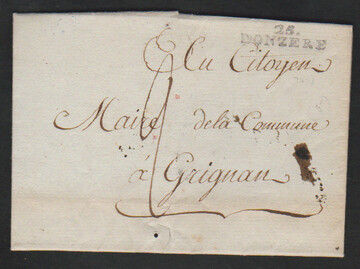 25.
DONZERE
Au Citoyen
Maire de la Commune
à Grignan